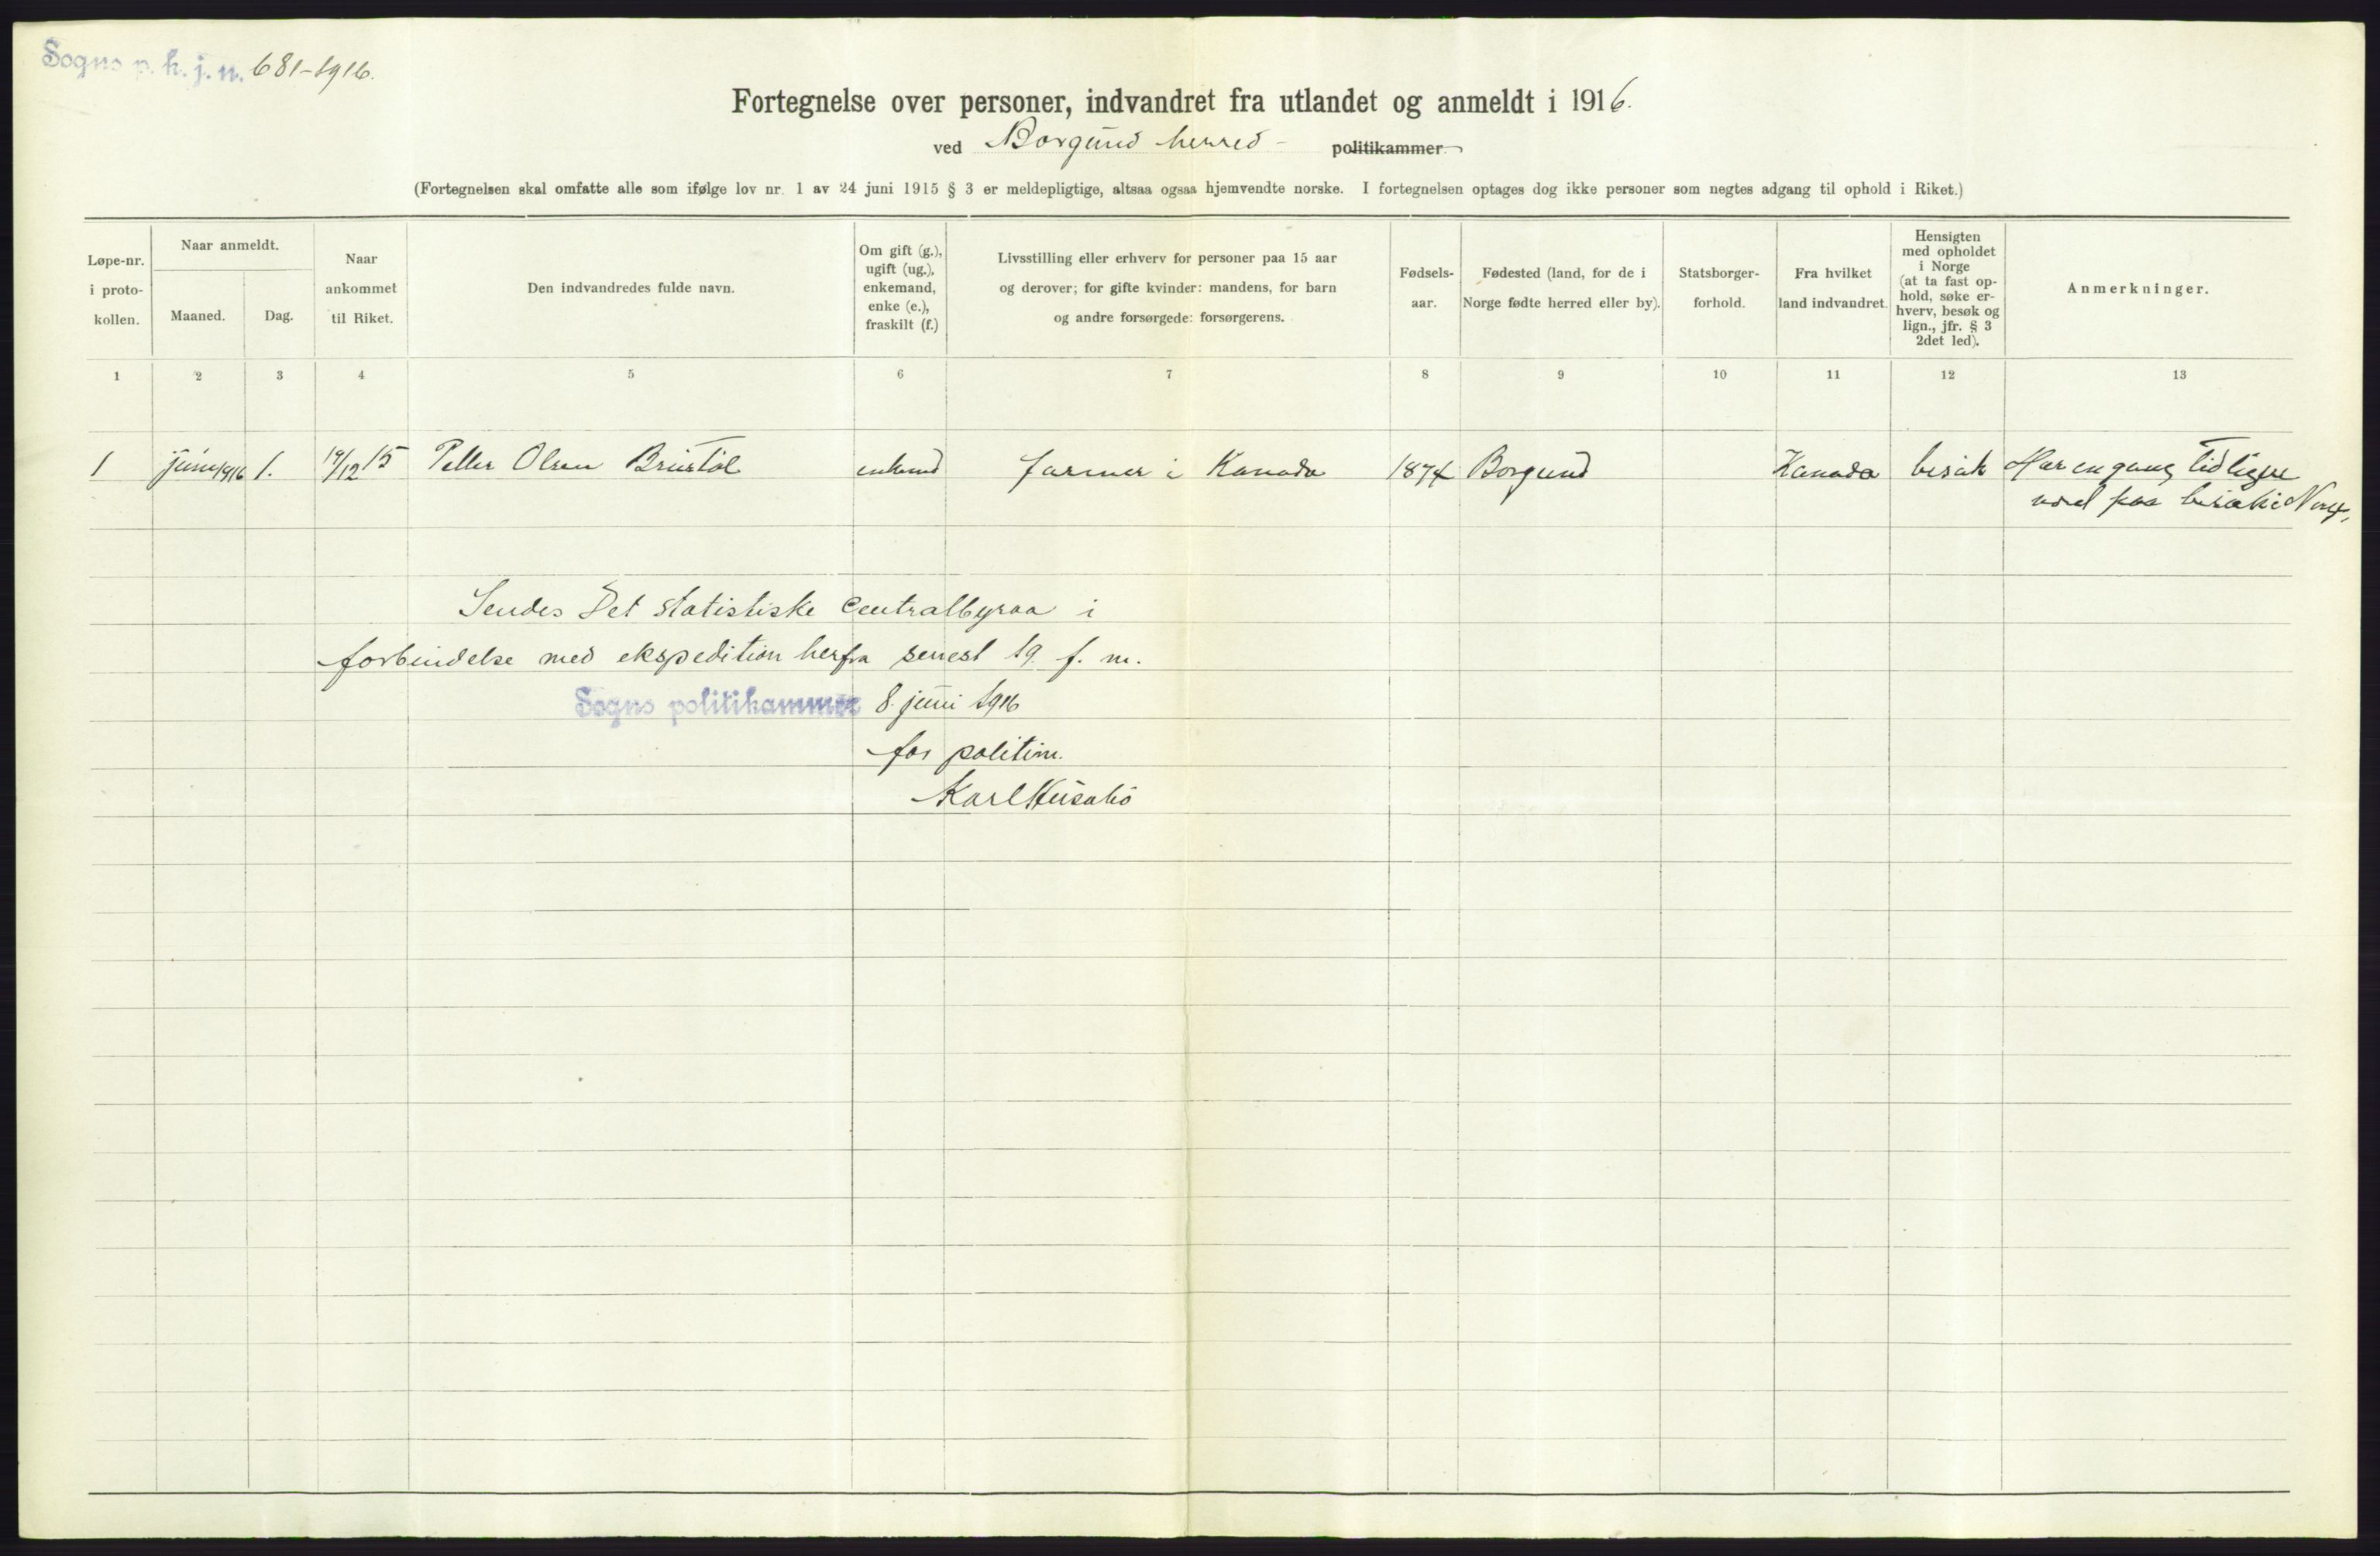 Sogns p. k. j. n. 681-1916.
Fortegnelse over personer, indvandret fra utlandet og anmeldt i 1916.
ved Borgund herred - politikammer
(Fortegnelsen skal omfatte alle som ifølge lov nr. 1 av 24 juni 1915 § 3 er meldepligtige, altsaa ogsaa hjemvendte norske. I fortegnelsen optages dog ikke personer som negtes adgang til ophold i Riket.)
Løpe-nr.
i proto-
kollen.
Naar anmeldt.
Maaned.
Dag.
Naar
ankommet
til Riket.
Den indvandredes fulde navn.
Om gift (g.),
ugift (ug.),
enkemand,
enke (e.),
fraskilt (f.)
Livsstilling eller erhverv for personer paa 15 aar
og derover; for gifte kvinder: mandens, for barn
og andre forsørgede: forsørgerens.
Fødsels-
aar.
Fødested (land, for de i
Norge fødte herred eller by).
Statsborger-
forhold.
Fra hvilket
land indvandret.
Hensigten
med opholdet
i Norge
(at ta fast op-
hold, søke er-
hverv, besøk og
lign., jfr. § 3
2det led).
Anmerkninger.
1 2 3 4 5 6 7 8 9 10 11 12 13
1 juni 1916 1. 19/12 15 Petter Olsen Brustøl enkemd farmer i Kanada 1874 Borgund Kanada besøk Har en gang tidligere
været paa besøk i Norge.
Sendes Det statistiske Centralbyraa i
forbindelse med ekspedition herfra senest 19. f. m.
Sogns politikammer 8. juni 1916
for politim.
Karl Husabø